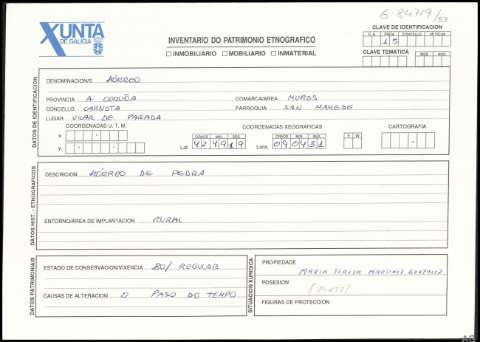 G-84719/57
XUNTA
DE GALICIA
INVENTARIO DO PATRIMONIO ETNOGRAFICO
INMOBILIARIO MOBILIARIO INMATERIAL
CLAVE DE IDENTIFICACION
15
CLAVE TEMATICA
DATOS DE IDENTIFICACION
DENOMINACION/S HÓRREO
PROVINCIA A CORUÑA COMARCA/AREA MUROS
CONCELLO CARNOTA PARROQUIA SAN MAMEDE
LUGAR VILAR DE PARADA
COORDENADAS U.T.M. COORDENADAS XEOGRAFICAS CARTOGRAFIA
X
Y
GRADS MIN SEG GRADS MIN SEG E W
Lat 424919 Lonx 090431
DATOS HIST.- ETNOGRAFICOS
DESCRICION HÓRREO DE PEDRA
ENTORNO/AREA DE IMPLANTACION RURAL
DATOS PATRIMONIAIS
ESTADO DE CONSERVACION/VIXENCIA BO/ REGULAR
CAUSAS DE ALTERACION O PASO DO TEMPO
SITUACION XURIDICA
PROPIEDADE
MARIA TERESA MARTINEZ GONZALEZ
POSESION
FIGURAS DE PROTECCION